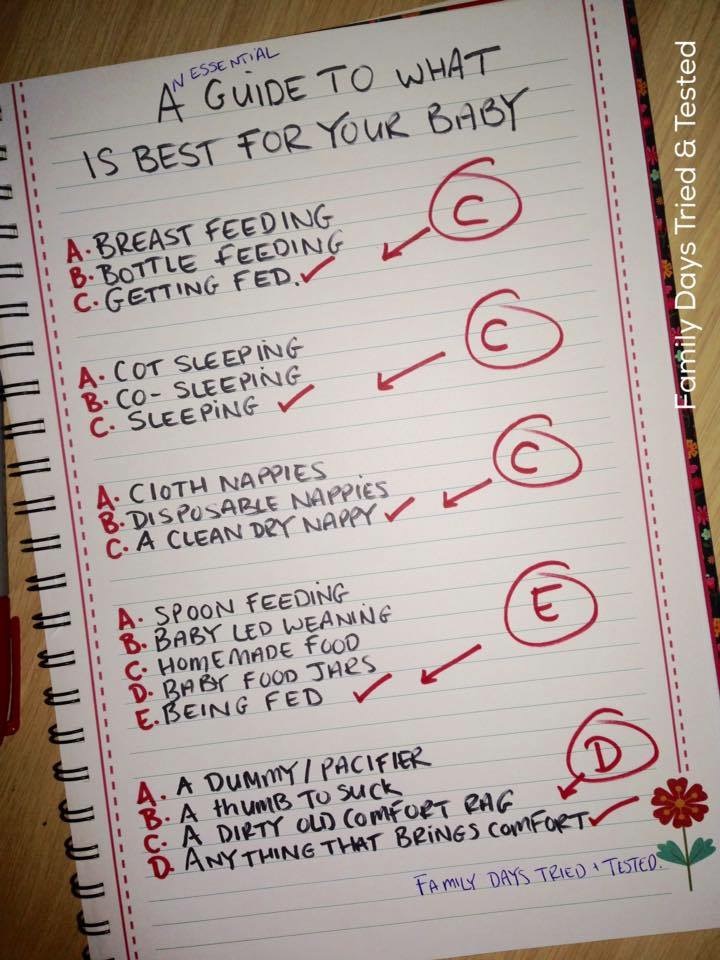 N ESSENTIAL
A GUIDE TO WHAT
IS BEST FOR YOUR BABY
A. BREAST FEEDING
B. BOTTLE FEEDING
C. GETTING FED. ✓
C
A. COT SLEEPING
B. CO-SLEEPING
C. SLEEPING ✓
C
A. ClOTH NAPPIES
B. DISPOSABLE NAPPIES
C. A CLEAN DRY NAPPY ✓
C
A. SPOON FEEDING
B. BABY LED WEANING
C. HOMEMADE FOOD
D. BABY FOOD JARS
E. BEING FED ✓
E
A. A DUMMY/PACIFIER
B. A thUMB TO SUCK
C. A DIRTY OLD COMFORT RAG
D. ANYTHING THAT BRINGS COMFORT ✓
D
FAMILY DAYS TRIED + TESTED.
Family Days Tried & Tested